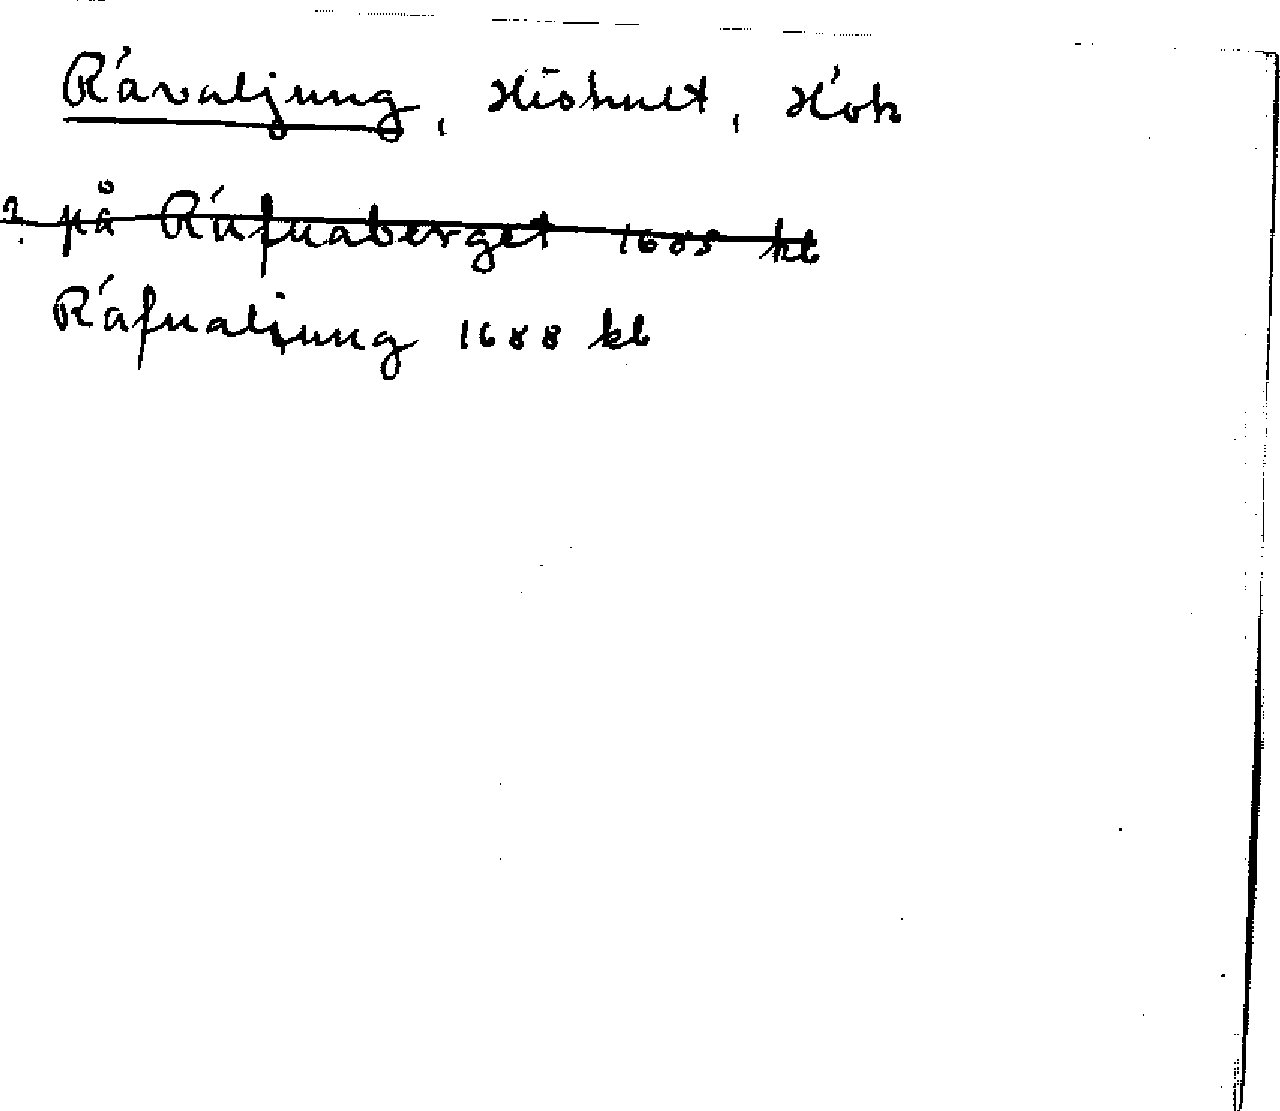 Rävaljung, Hishult, Hök
? på Räfnaberget 1685 kb
Räfnaljung 1688 kb